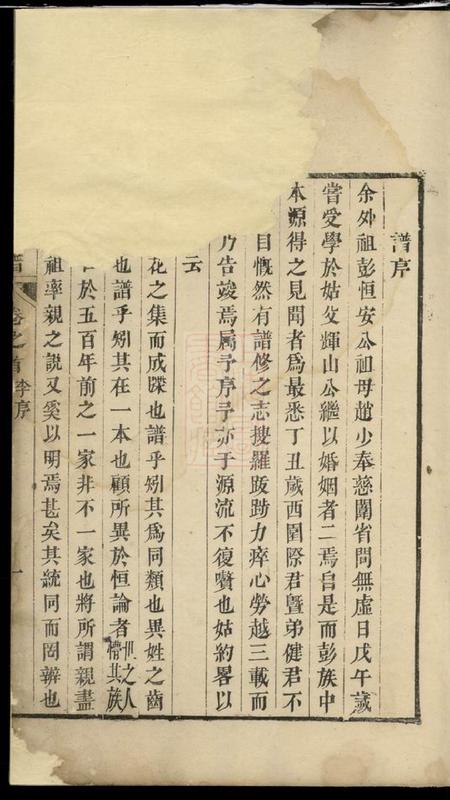 譜序
余外祖彭恒安公祖母趙少奉慈闈省問無虛日戊午歲
嘗受學於姑父輝山公繼以婚姻者二焉自是而彭族中
本源得之見聞者為最悉丁丑歲西圍際君暨弟健君不
目慨然有譜修之志搜羅跋踄力瘁心勞越三載而
乃告竣焉属予序予亦于源流不復贅也姑約畧以
云
花之集而成牒也譜乎矧其為同類也異姓之齒
也譜乎矧其在一本也顧所異於恒論者世之人懵其族
於五百年前之一家非不一家也將所謂親盡
祖率親之説又奚以明焉甚矣其統同而罔辨也
譜
卷之首
李序
一